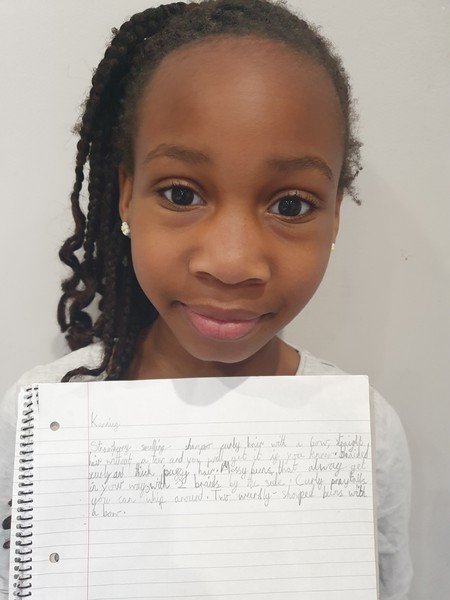 Strawberry smelling shampoo curly hair with a bow, straight
hair without a bow and so pretty with it if you knew. Braided
curly and thick puffy hair. Messy buns that always get
in your way with 32 braids by the side. Curly ponytails
you can whip around. Two weirdly-shaped buns with
a bow.